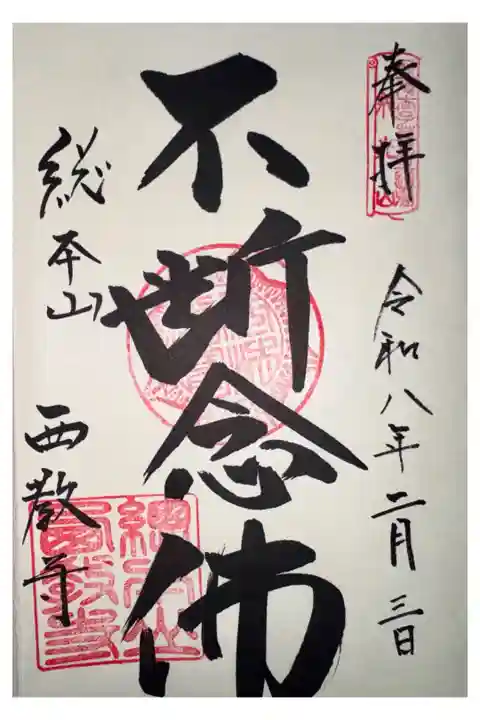 奉拝
令和八年二月三日
不断念佛
総本山
西教寺